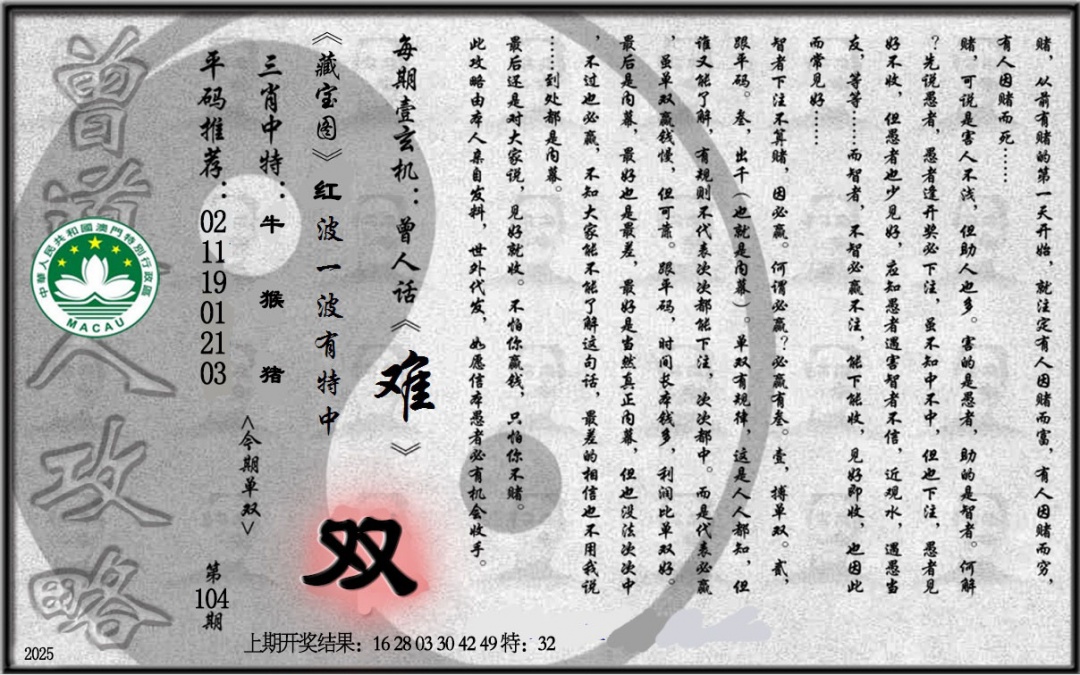 赌，从前有赌的第一天开始，就注定有人因赌而富，有人因赌而穷，
有人因赌而死……
赌，可说是害人不浅，但助人也多。害的是愚者，助的是智者。何解
？先说愚者，愚者逢开奖必下注，虽不知中不中，但也下注，愚者见
好不收，但愚者也少见好，应知愚者遇害智者不信，近观水，遇愚当
友，等等……而智者，不智必赢不注，能下能收，见好即收，也因此
而常见好……
智者下注不算赌，因必赢。何谓必赢？必赢有叁。壹，搏单双。贰，
跟平码。叁，出千（也就是内幕）。单双有规律，这是人人都知，但
谁又能了解，有规则不代表次次都能下注，次次都中。而是代表必赢
，虽单双赢钱慢，但可靠。跟平码，时间长本钱多，利润比单双好。
最后是内幕，最好也是最差，最好是当然真正内幕，但也没法次次中
，不过也必赢，不知大家能不能了解这句话，最差的相信也不用我说
……到处都是内幕。
最后还是对大家说，见好就收。不怕你赢钱，只怕你不赌。
此攻略由本人亲自发料，世外代发，如愿信本愚者必有机会收手。
每期壹玄机：曾人话《难》
《藏宝图》红波一波有特中
双
三肖中特：牛 猴 猪
<今期单双>
平码推荐：02 11 19 01 21 03
第104期
曾道人攻略
中華人民共和國澳門特別行政區
MACAU
上期开奖结果：16 28 03 30 42 49 特：32
2025